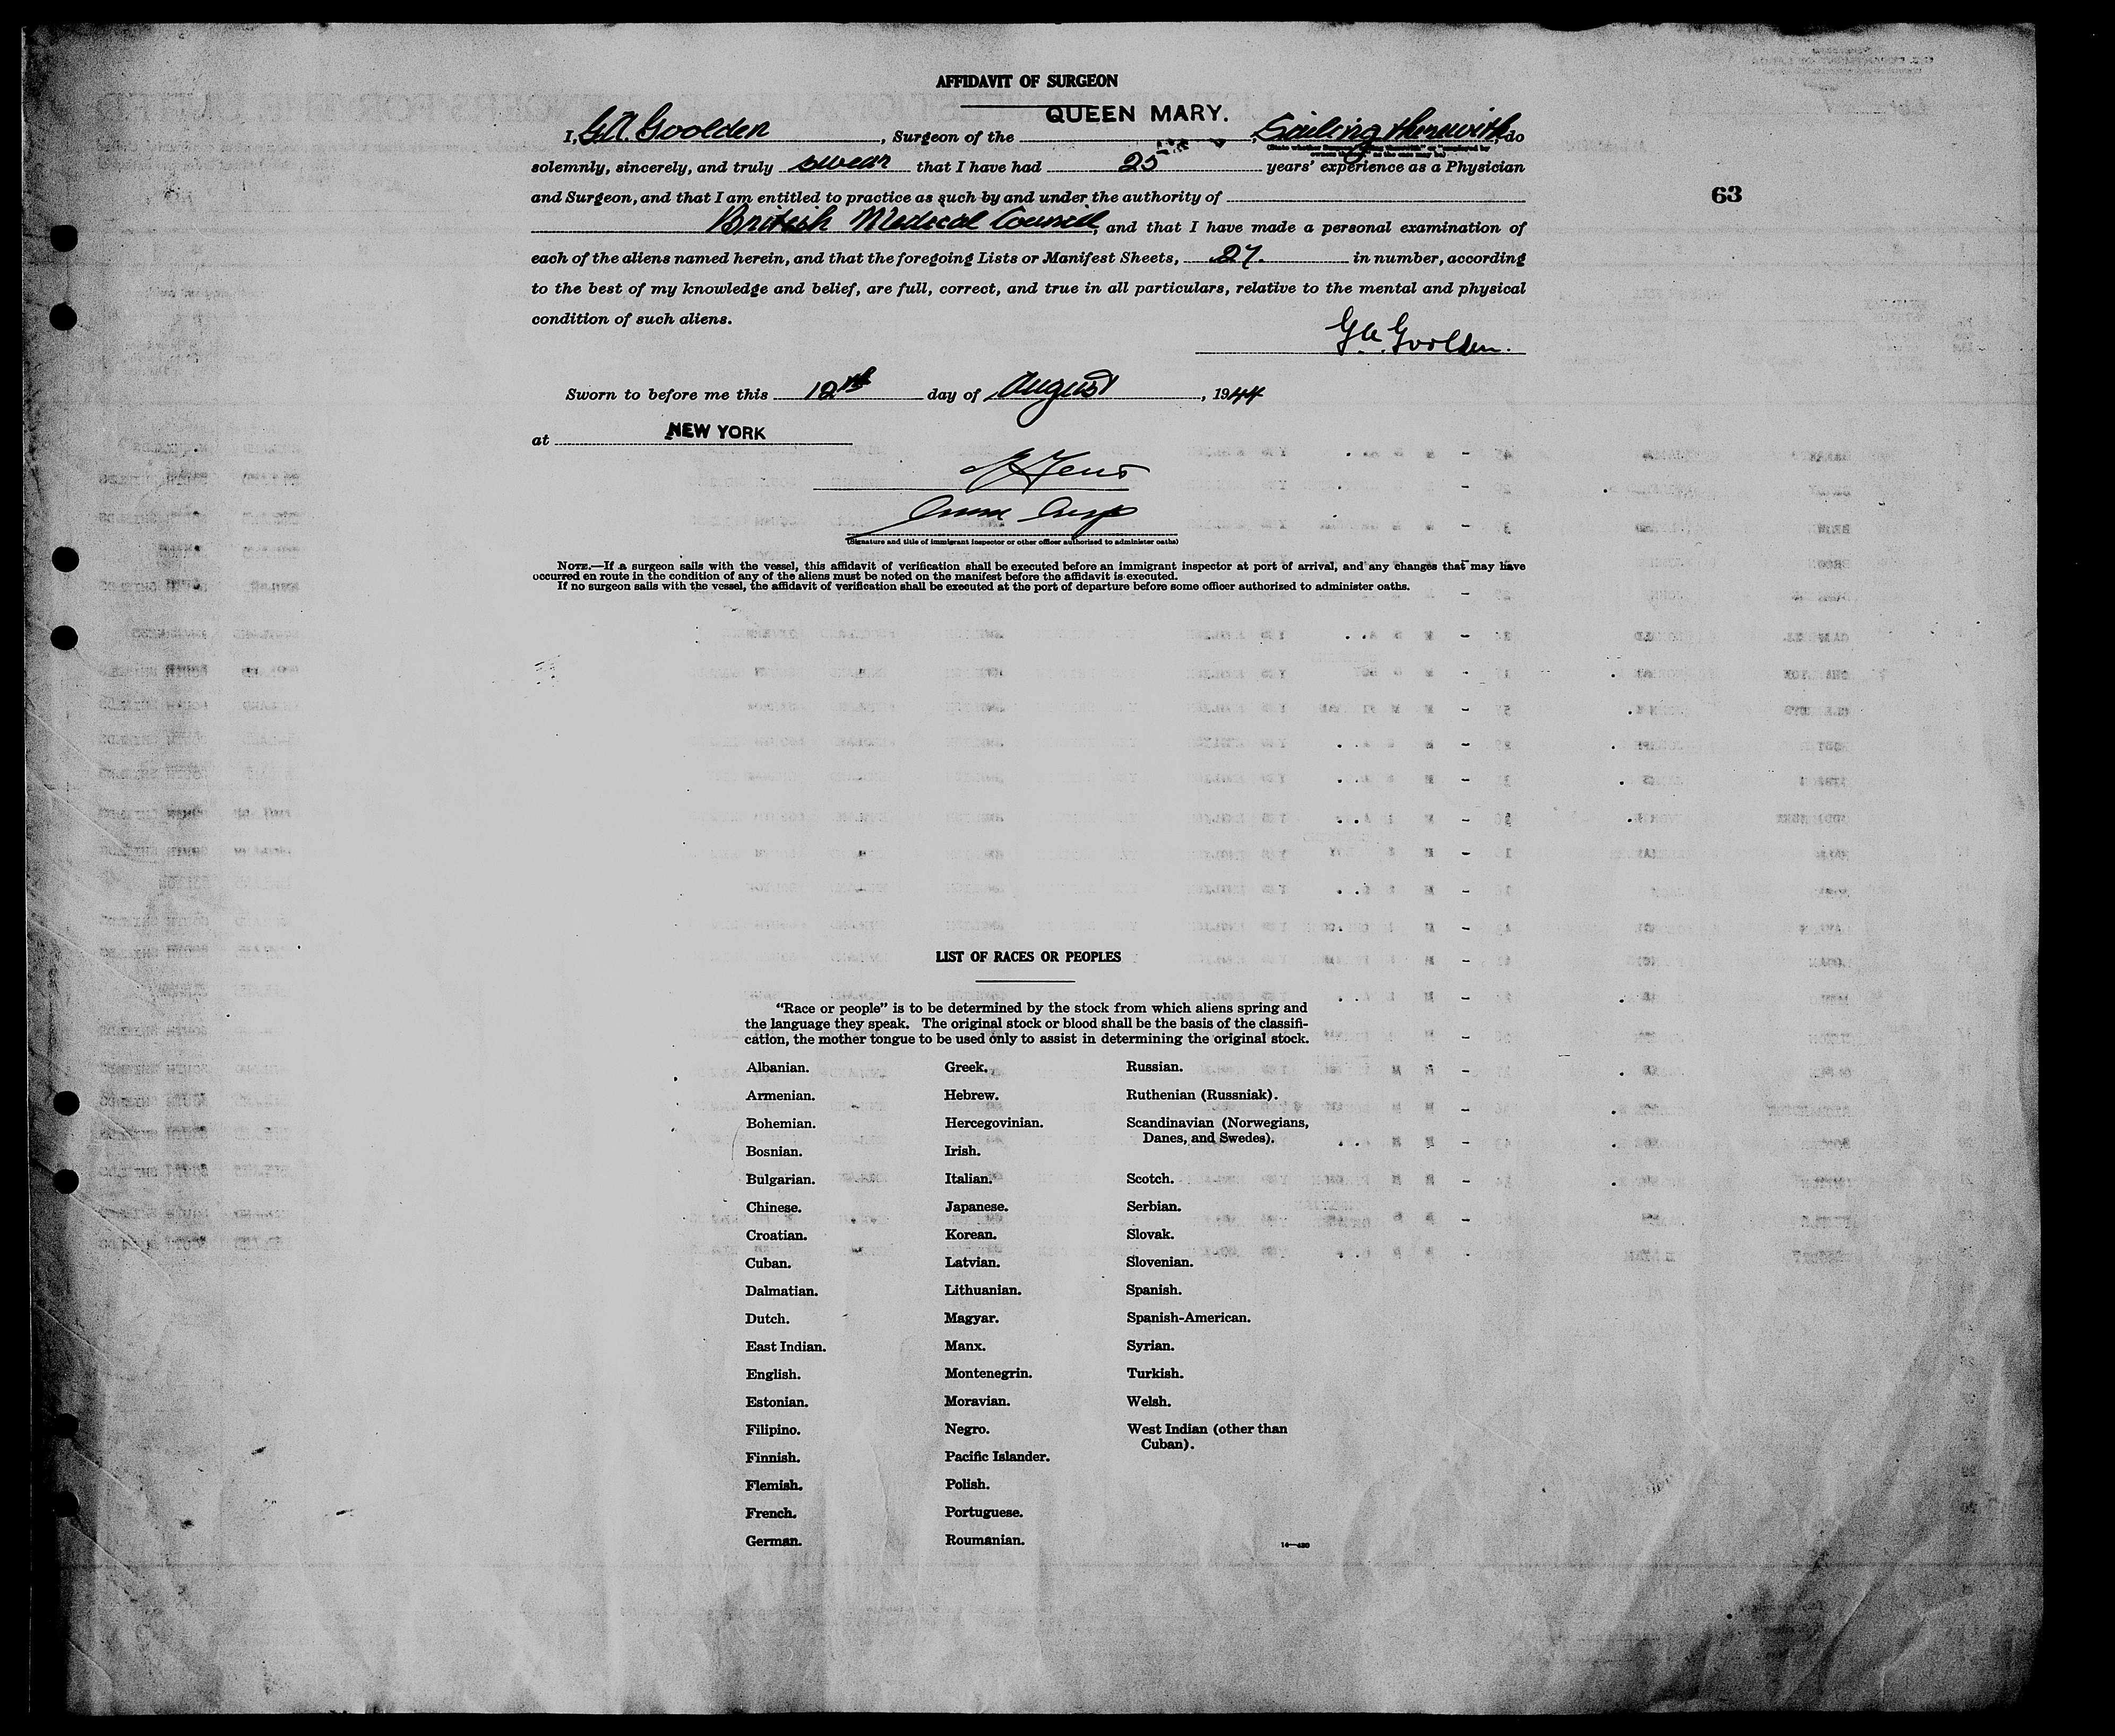 AFFIDAVIT OF SURGEON
QUEEN MARY.
I, G.A. Goolden, Surgeon of the , Sailing therewith, do
(State whether Surgeon "sailing therewith" or "employed by
owners thereof," as the case may be)
solemnly, sincerely, and truly swear that I have had 25 years' experience as a Physician
63
and Surgeon, and that I am entitled to practice as such by and under the authority of
British Medical Council, and that I have made a personal examination of
each of the aliens named herein, and that the foregoing Lists or Manifest Sheets, 27. in number, according
to the best of my knowledge and belief, are full, correct, and true in all particulars, relative to the mental and physical
condition of such aliens.
G.A. Goolden.
Sworn to before me this 12th day of August, 1944
at NEW YORK
Imm Insp
(Signature and title of immigrant inspector or other officer authorized to administer oaths)
NOTE.—If a surgeon sails with the vessel, this affidavit of verification shall be executed before an immigrant inspector at port of arrival, and any changes that may have
occurred en route in the condition of any of the aliens must be noted on the manifest before the affidavit is executed.
If no surgeon sails with the vessel, the affidavit of verification shall be executed at the port of departure before some officer authorized to administer oaths.
LIST OF RACES OR PEOPLES
"Race or people" is to be determined by the stock from which aliens spring and
the language they speak. The original stock or blood shall be the basis of the classifi-
cation, the mother tongue to be used only to assist in determining the original stock.
Albanian.
Armenian.
Bohemian.
Bosnian.
Bulgarian.
Chinese.
Croatian.
Cuban.
Dalmatian.
Dutch.
East Indian.
English.
Estonian.
Filipino.
Finnish.
Flemish.
French.
German.
Greek.
Hebrew.
Hercegovinian.
Irish.
Italian.
Japanese.
Korean.
Latvian.
Lithuanian.
Magyar.
Manx.
Montenegrin.
Moravian.
Negro.
Pacific Islander.
Polish.
Portuguese.
Roumanian.
Russian.
Ruthenian (Russniak).
Scandinavian (Norwegians,
Danes, and Swedes).
Scotch.
Serbian.
Slovak.
Slovenian.
Spanish.
Spanish-American.
Syrian.
Turkish.
Welsh.
West Indian (other than
Cuban).
14—430